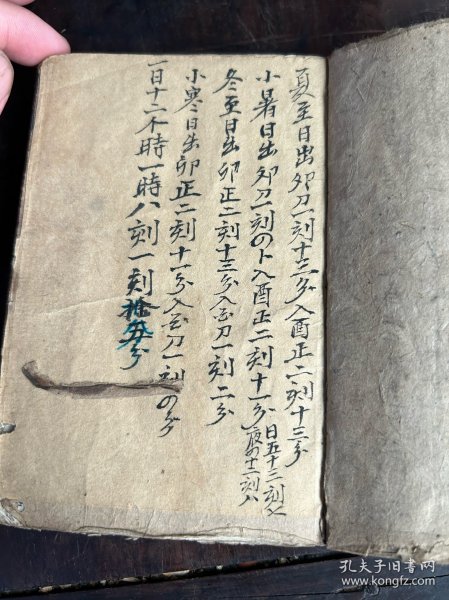 夏至日出夘刀一刻十二分入酉正二刻十三分
小暑日出夘刀一刻の卜入酉正二刻十一分
日五十三刻
夜四十二刻八
冬至日出卯正二刻十三分入酉刀一刻二分
小寒日出卯正二刻十一分入酉刀一刻の分
一日十二个時一時八刻一刻拾五分
孔夫子旧书网
www.kongfz.com